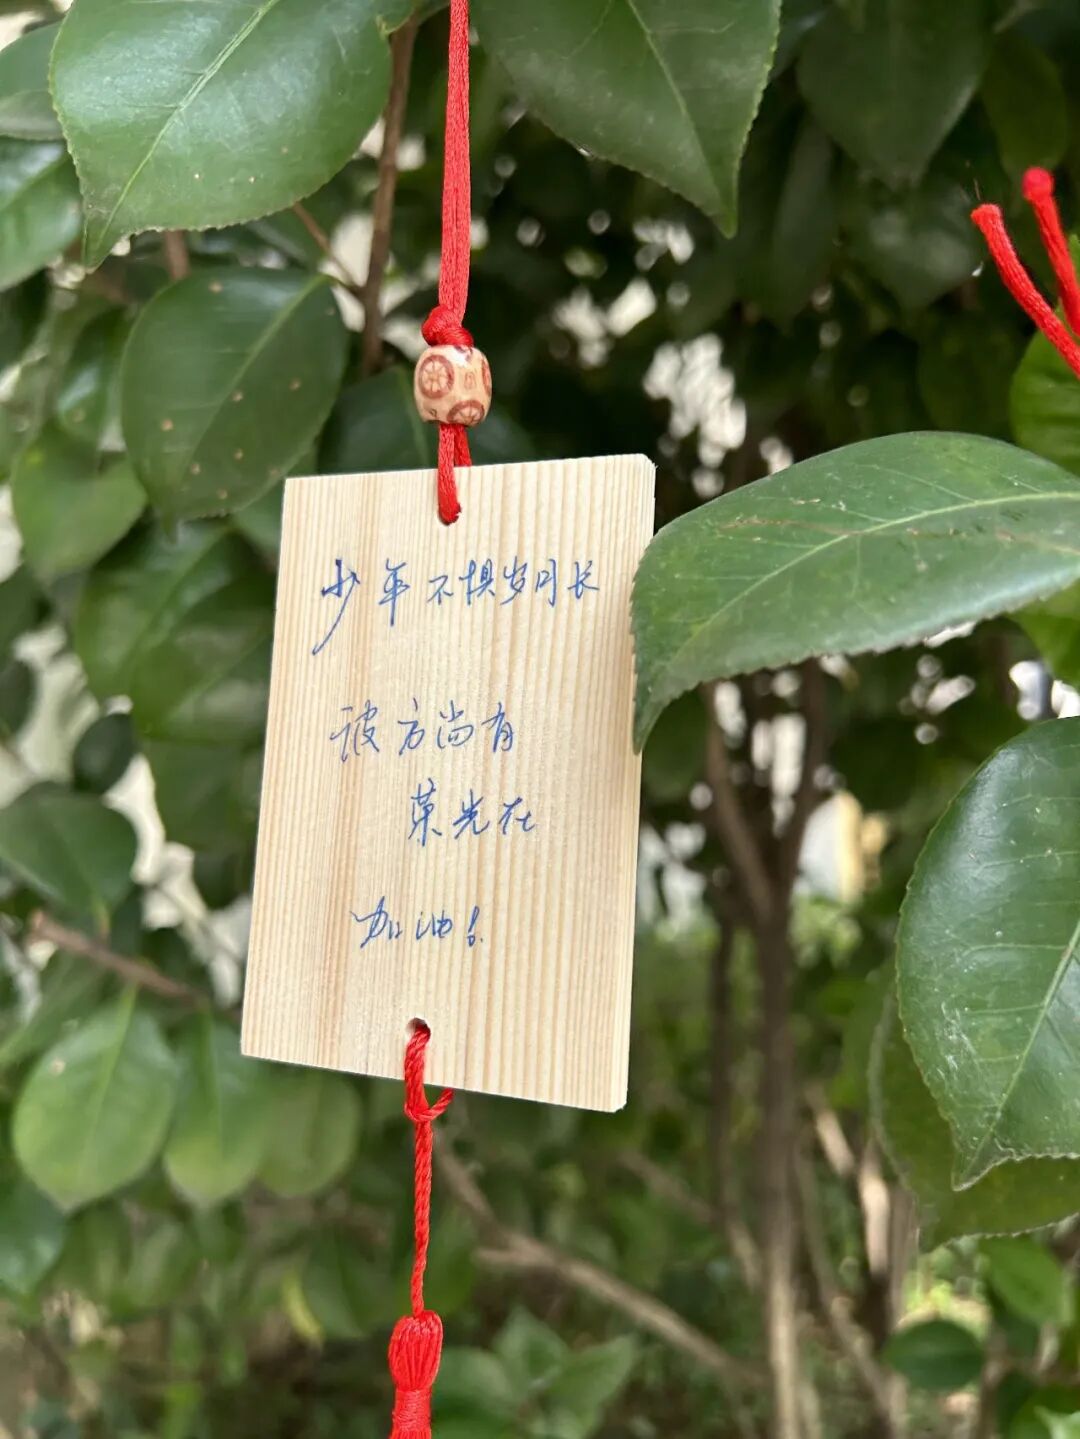 少年不惧岁月长
彼方尚有
荣光在
加油！